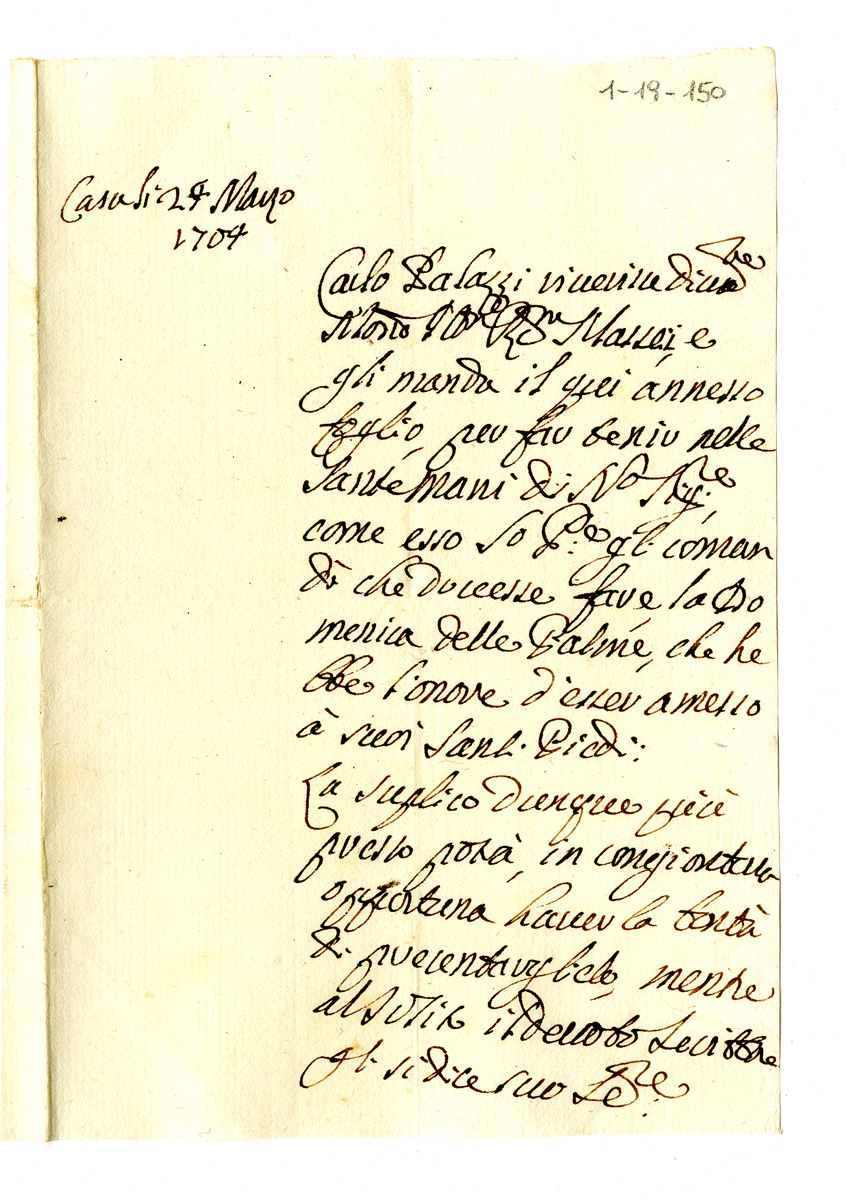 1-19-150
Casa li 24 Marzo
1704
Carlo Palazzi riverisce
Monsr Massei, e
gli manda il qui annesso
foglio, per far tenir nelle
Sante Mani di No Sigre
come esso So Pre gli coman
dò che dovesse fare, la Do
menica delle Palme, che he
bbe l'onore d'esser amesso
à suoi Santi Piedi:
La suplico dunque più
presto potrà, in congiontura
opportuna haver la bontà
di presentarglielo, mentre
al solito il devoto Scrittore
gli si dice suo Sere.